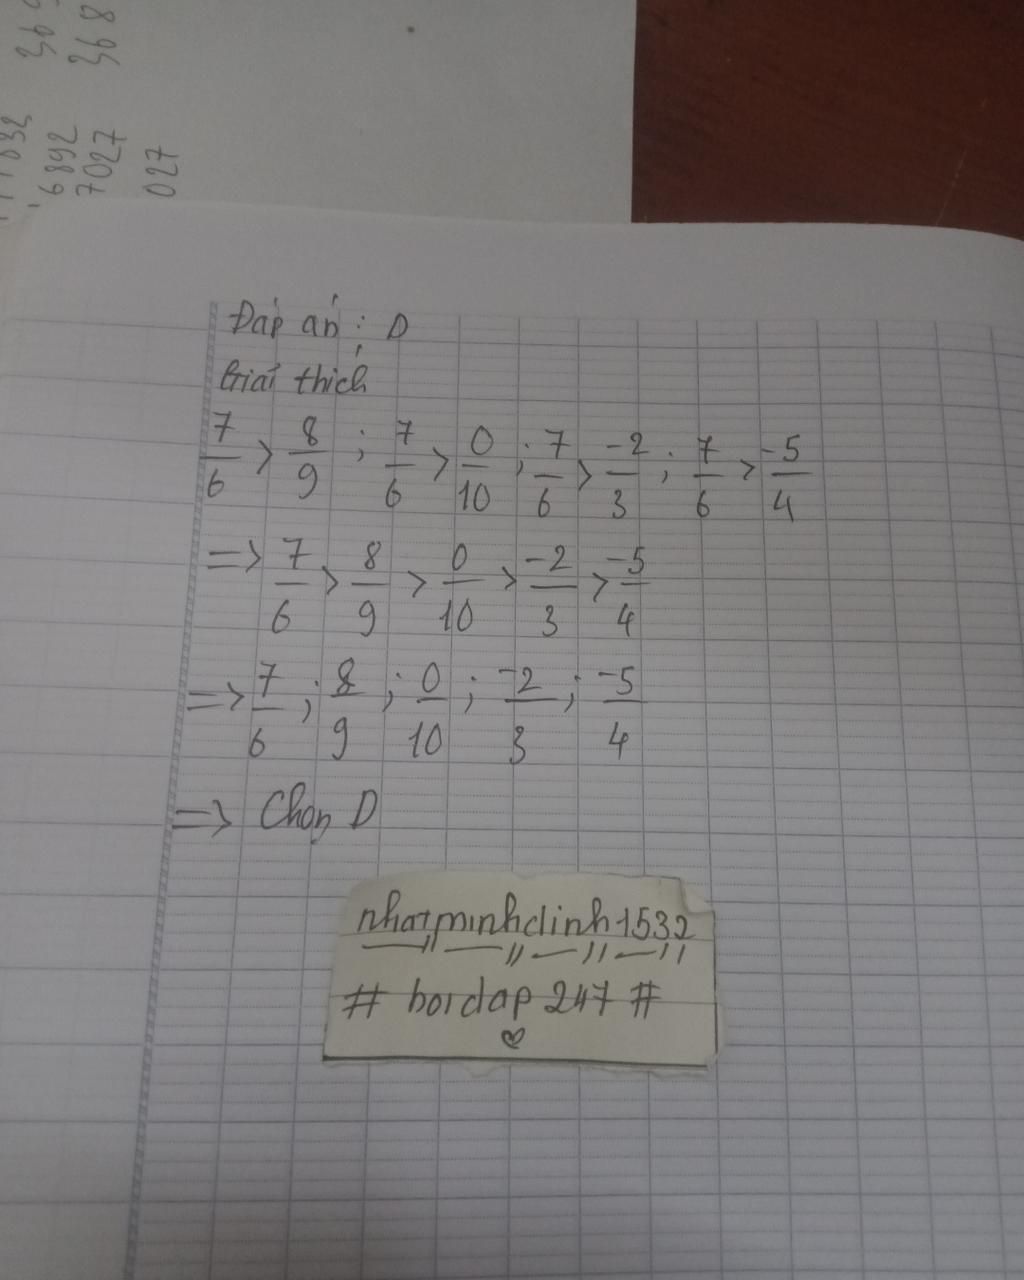 368
6892
7027
027
Đáp án : D
Giải thích
7/6 > 8/9 ; 7/6 > 0/10 ; 7/6 > -2/3 ; 7/6 > -5/4
=> 7/6 > 8/9 > 0/10 > -2/3 > -5/4
=> 7/6 ; 8/9 ; 0/10 ; -2/3 ; -5/4
=> Chọn D
nhatminhdinh1532
# hoidap 247 #